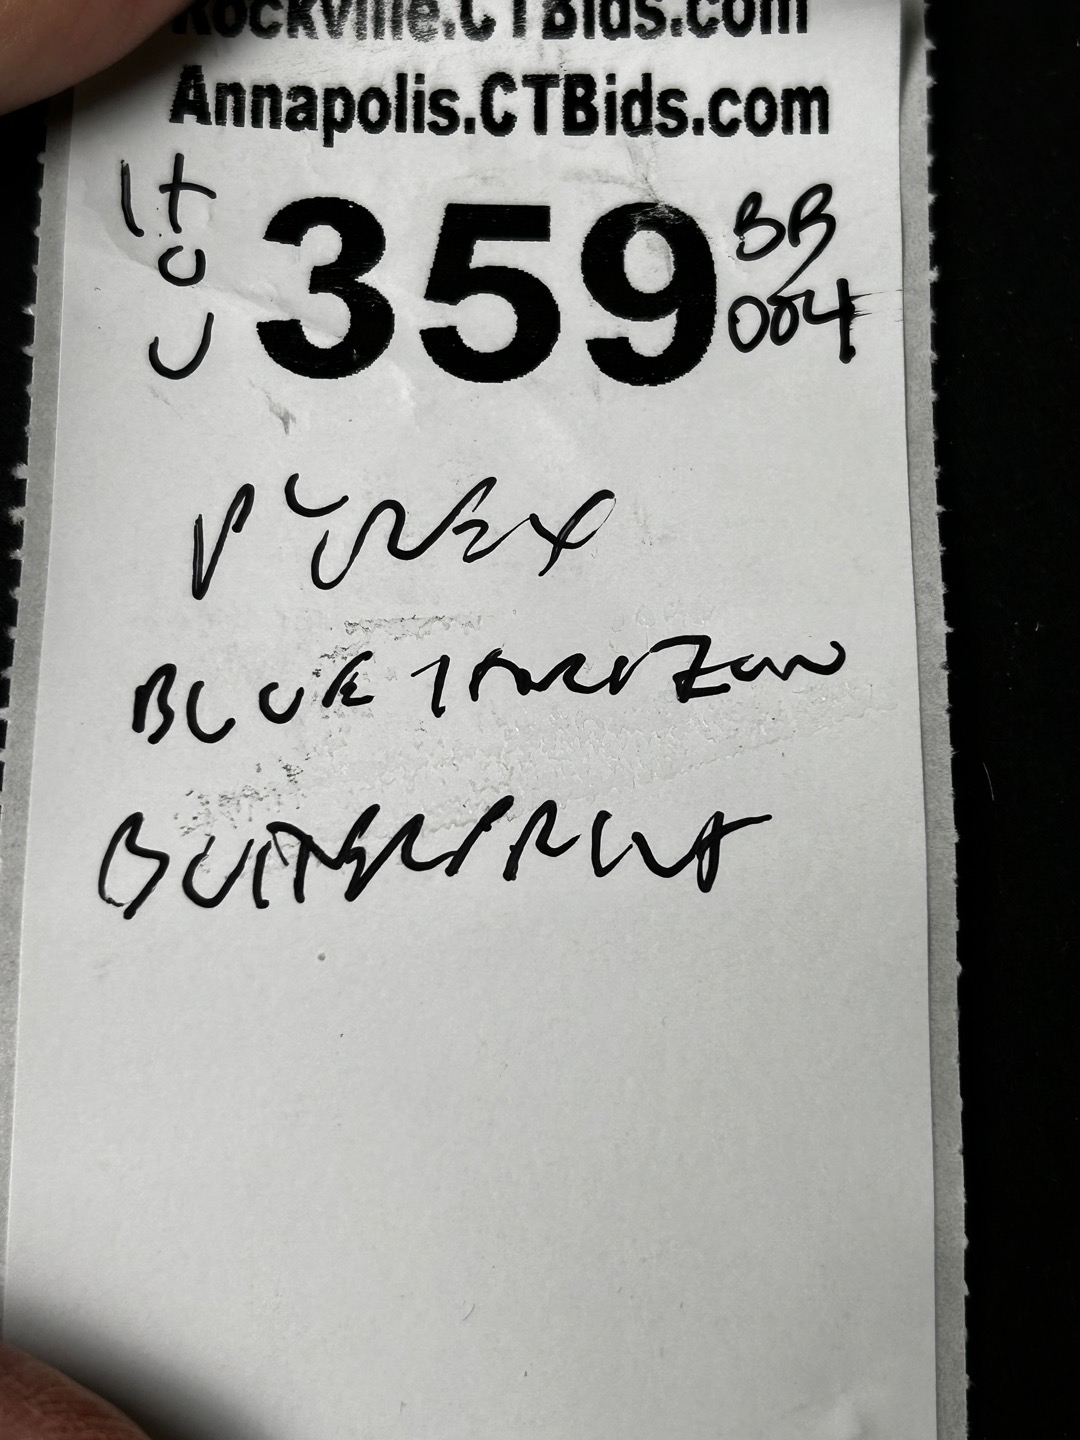 Rockville.CTBids.com
Annapolis.CTBids.com
359
BR
004
PYREX
BLUE HORIZON
BUTTERPRINT